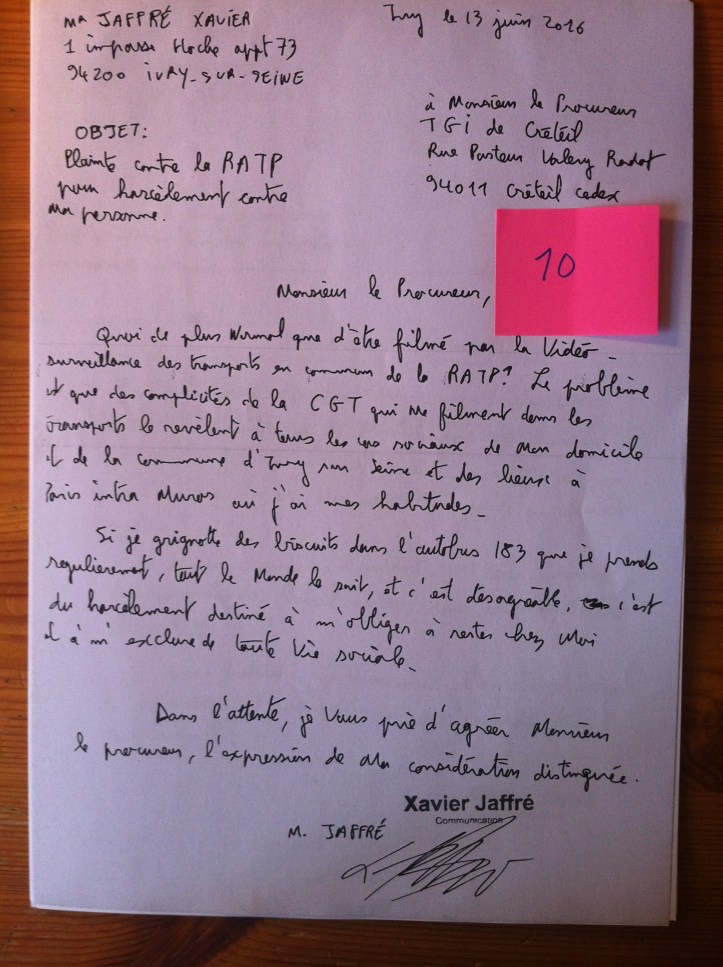 Mr JAFFRÉ XAVIER
1 impasse Hoche appt 73
94200 IVRY-SUR-SEINE
Ivry le 13 juin 2016
à Monsieur le Procureur
TGi de Créteil
Rue Pasteur Valery Radot
94011 Créteil cedex
OBJET:
Plainte contre la RATP
pour harcèlement contre
ma personne.
10
Monsieur le Procureur,
Quoi de plus normal que d'être filmé par la Vidéo-
surveillance des transports en commun de la RATP? Le problème
est que des complicités de la CGT qui me filment dans les
transports le revèlent à tous les cas sociaux de mon domicile
et de la commune d'Ivry sur Seine et des lieux à
Paris intra Muros où j'ai mes habitudes.
Si je grignotte des biscuits dans l'autobus 183 que je prends
regulièrement, tout le Monde le sait, et c'est desagréable, c'est
du harcèlement destiné à m'obliger à rester chez Moi
et à m'exclure de toute Vie sociale.
Dans l'attente, je Vous prie d'agréer Monsieur
le procureur, l'expression de Ma considération distinguée.
Xavier Jaffré
Communication
M. JAFFRÉ